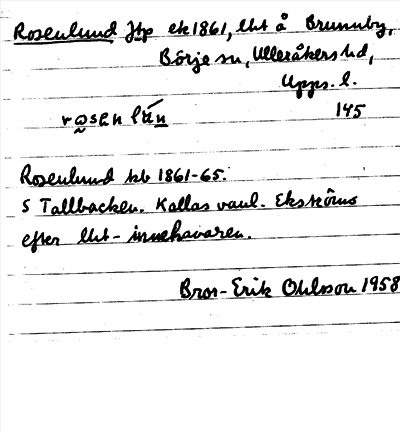 Rosenlund Ttp ek 1861, lht å Brunnby,
Börje sn, Ulleråkers hd,
Upps. l.
rosen lún 145
Rosenlund kb 1861-65.
S Tallbacken. Kallas vanl. Ekströms
efter lht-innehavaren.
Bror-Erik Ohlsson 1958